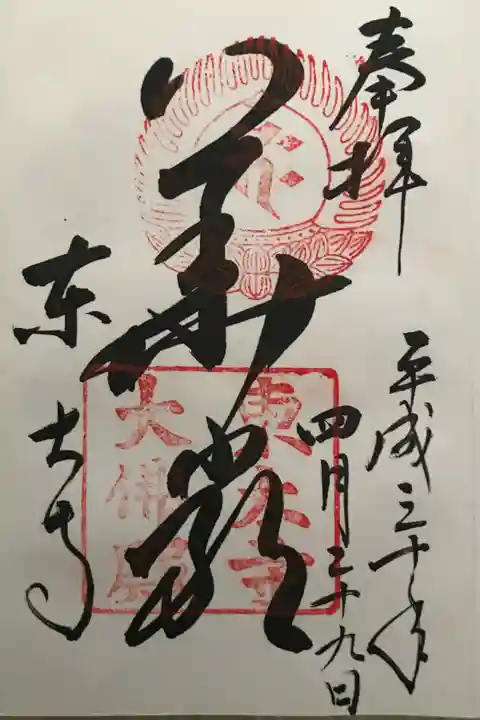 奉拝
平成三十年
四月二十九日
華厳
東大寺
東大寺
大佛殿